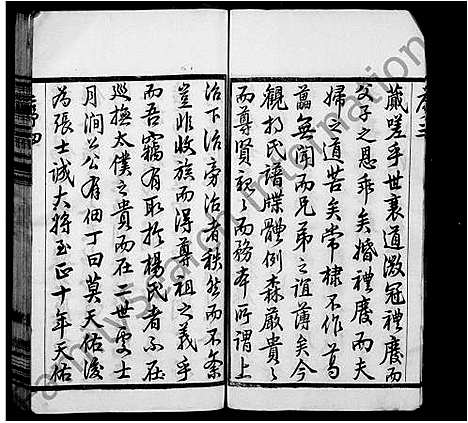 蕆嗟乎世衰道微冠禮廢而
父子之恩乖矣婚禮廢而夫
婦之道苦矣常棣不作葛
藟無聞而兄弟之誼薄矣今
觀於氏譜牒體例森嚴貴貴
而尊賢親親而務本所謂上
治下治旁治者秩然而不紊
豈非收族而得尊祖之義乎
而吾竊有取於楊氏者不在
巡撫太僕之貴而在二世處士
月澗公公有佃丁曰莫天佑後
為張士誠大將至正十年天佑
序三
序四
FamilySearch International